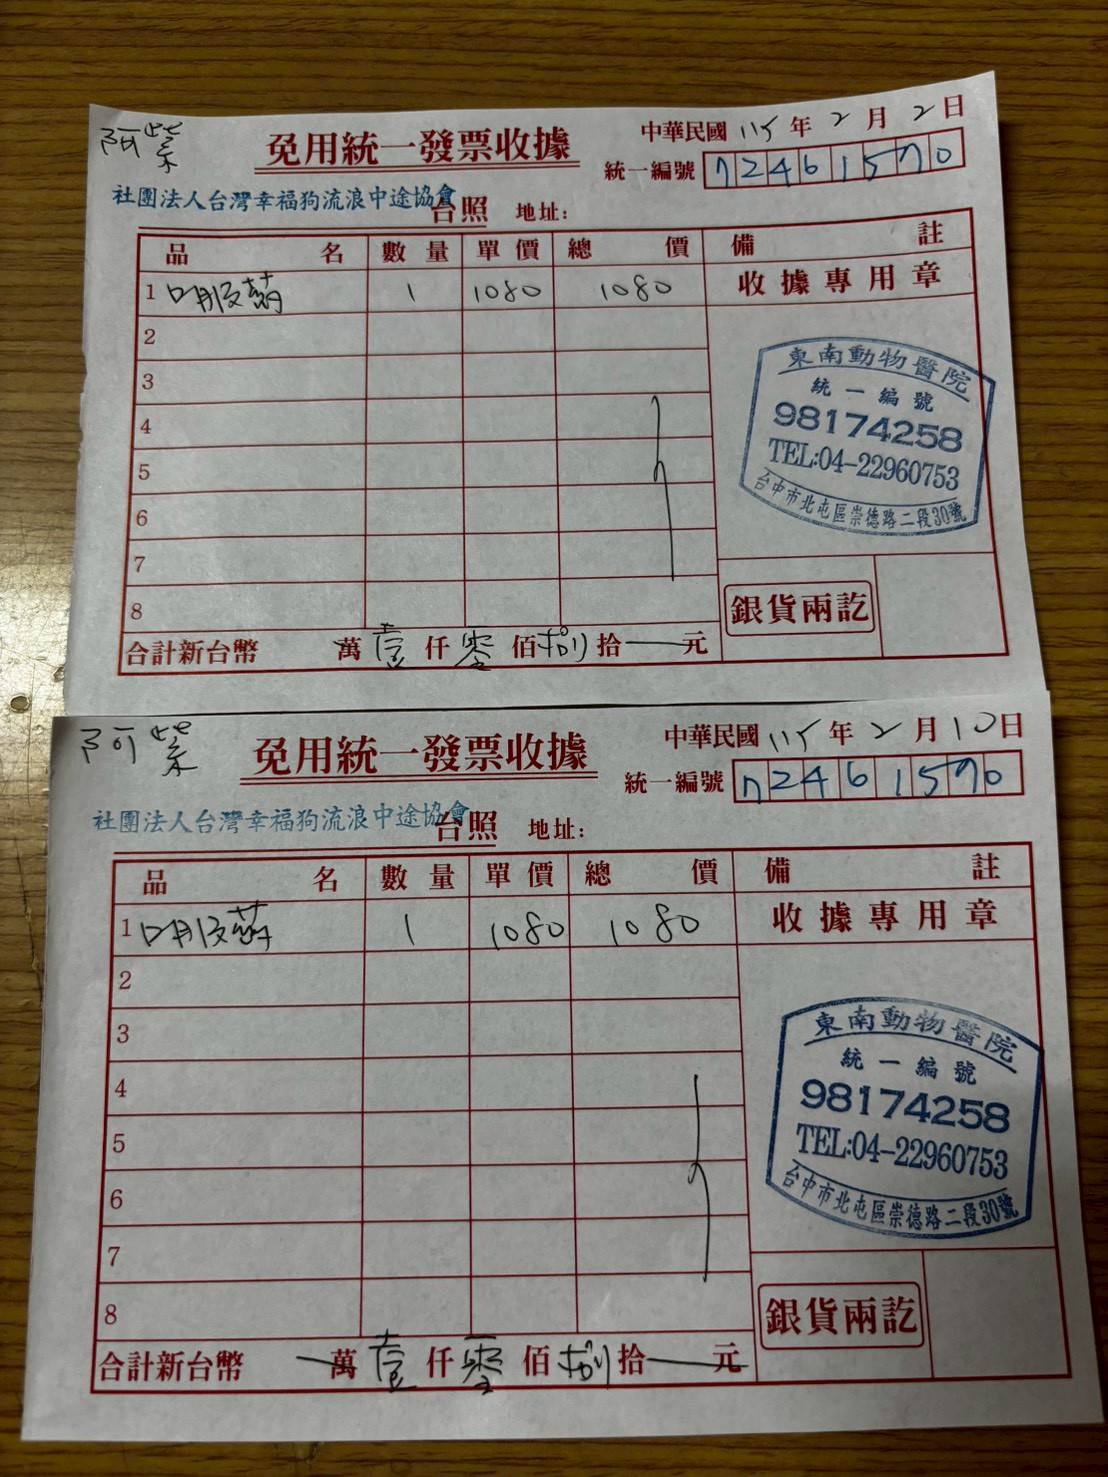 阿紫
免用統一發票收據
中華民國 115 年 2 月 2 日
統一編號 72461570
社團法人台灣幸福狗流浪中途協會 台照 地址:
品名 數量 單價 總價 備註
1 口服藥 1 1080 1080 收據專用章
2
3
4
5
6
7
8
東南動物醫院
統一編號
98174258
TEL:04-22960753
台中市北屯區崇德路二段30號
銀貨兩訖
合計新台幣 萬 壹 仟 零 佰 捌 拾 元
阿紫
免用統一發票收據
中華民國 115 年 2 月 10 日
統一編號 72461570
社團法人台灣幸福狗流浪中途協會 台照 地址:
品名 數量 單價 總價 備註
1 口服藥 1 1080 1080 收據專用章
2
3
4
5
6
7
8
東南動物醫院
統一編號
98174258
TEL:04-22960753
台中市北屯區崇德路二段30號
銀貨兩訖
合計新台幣 萬 壹 仟 零 佰 捌 拾 元